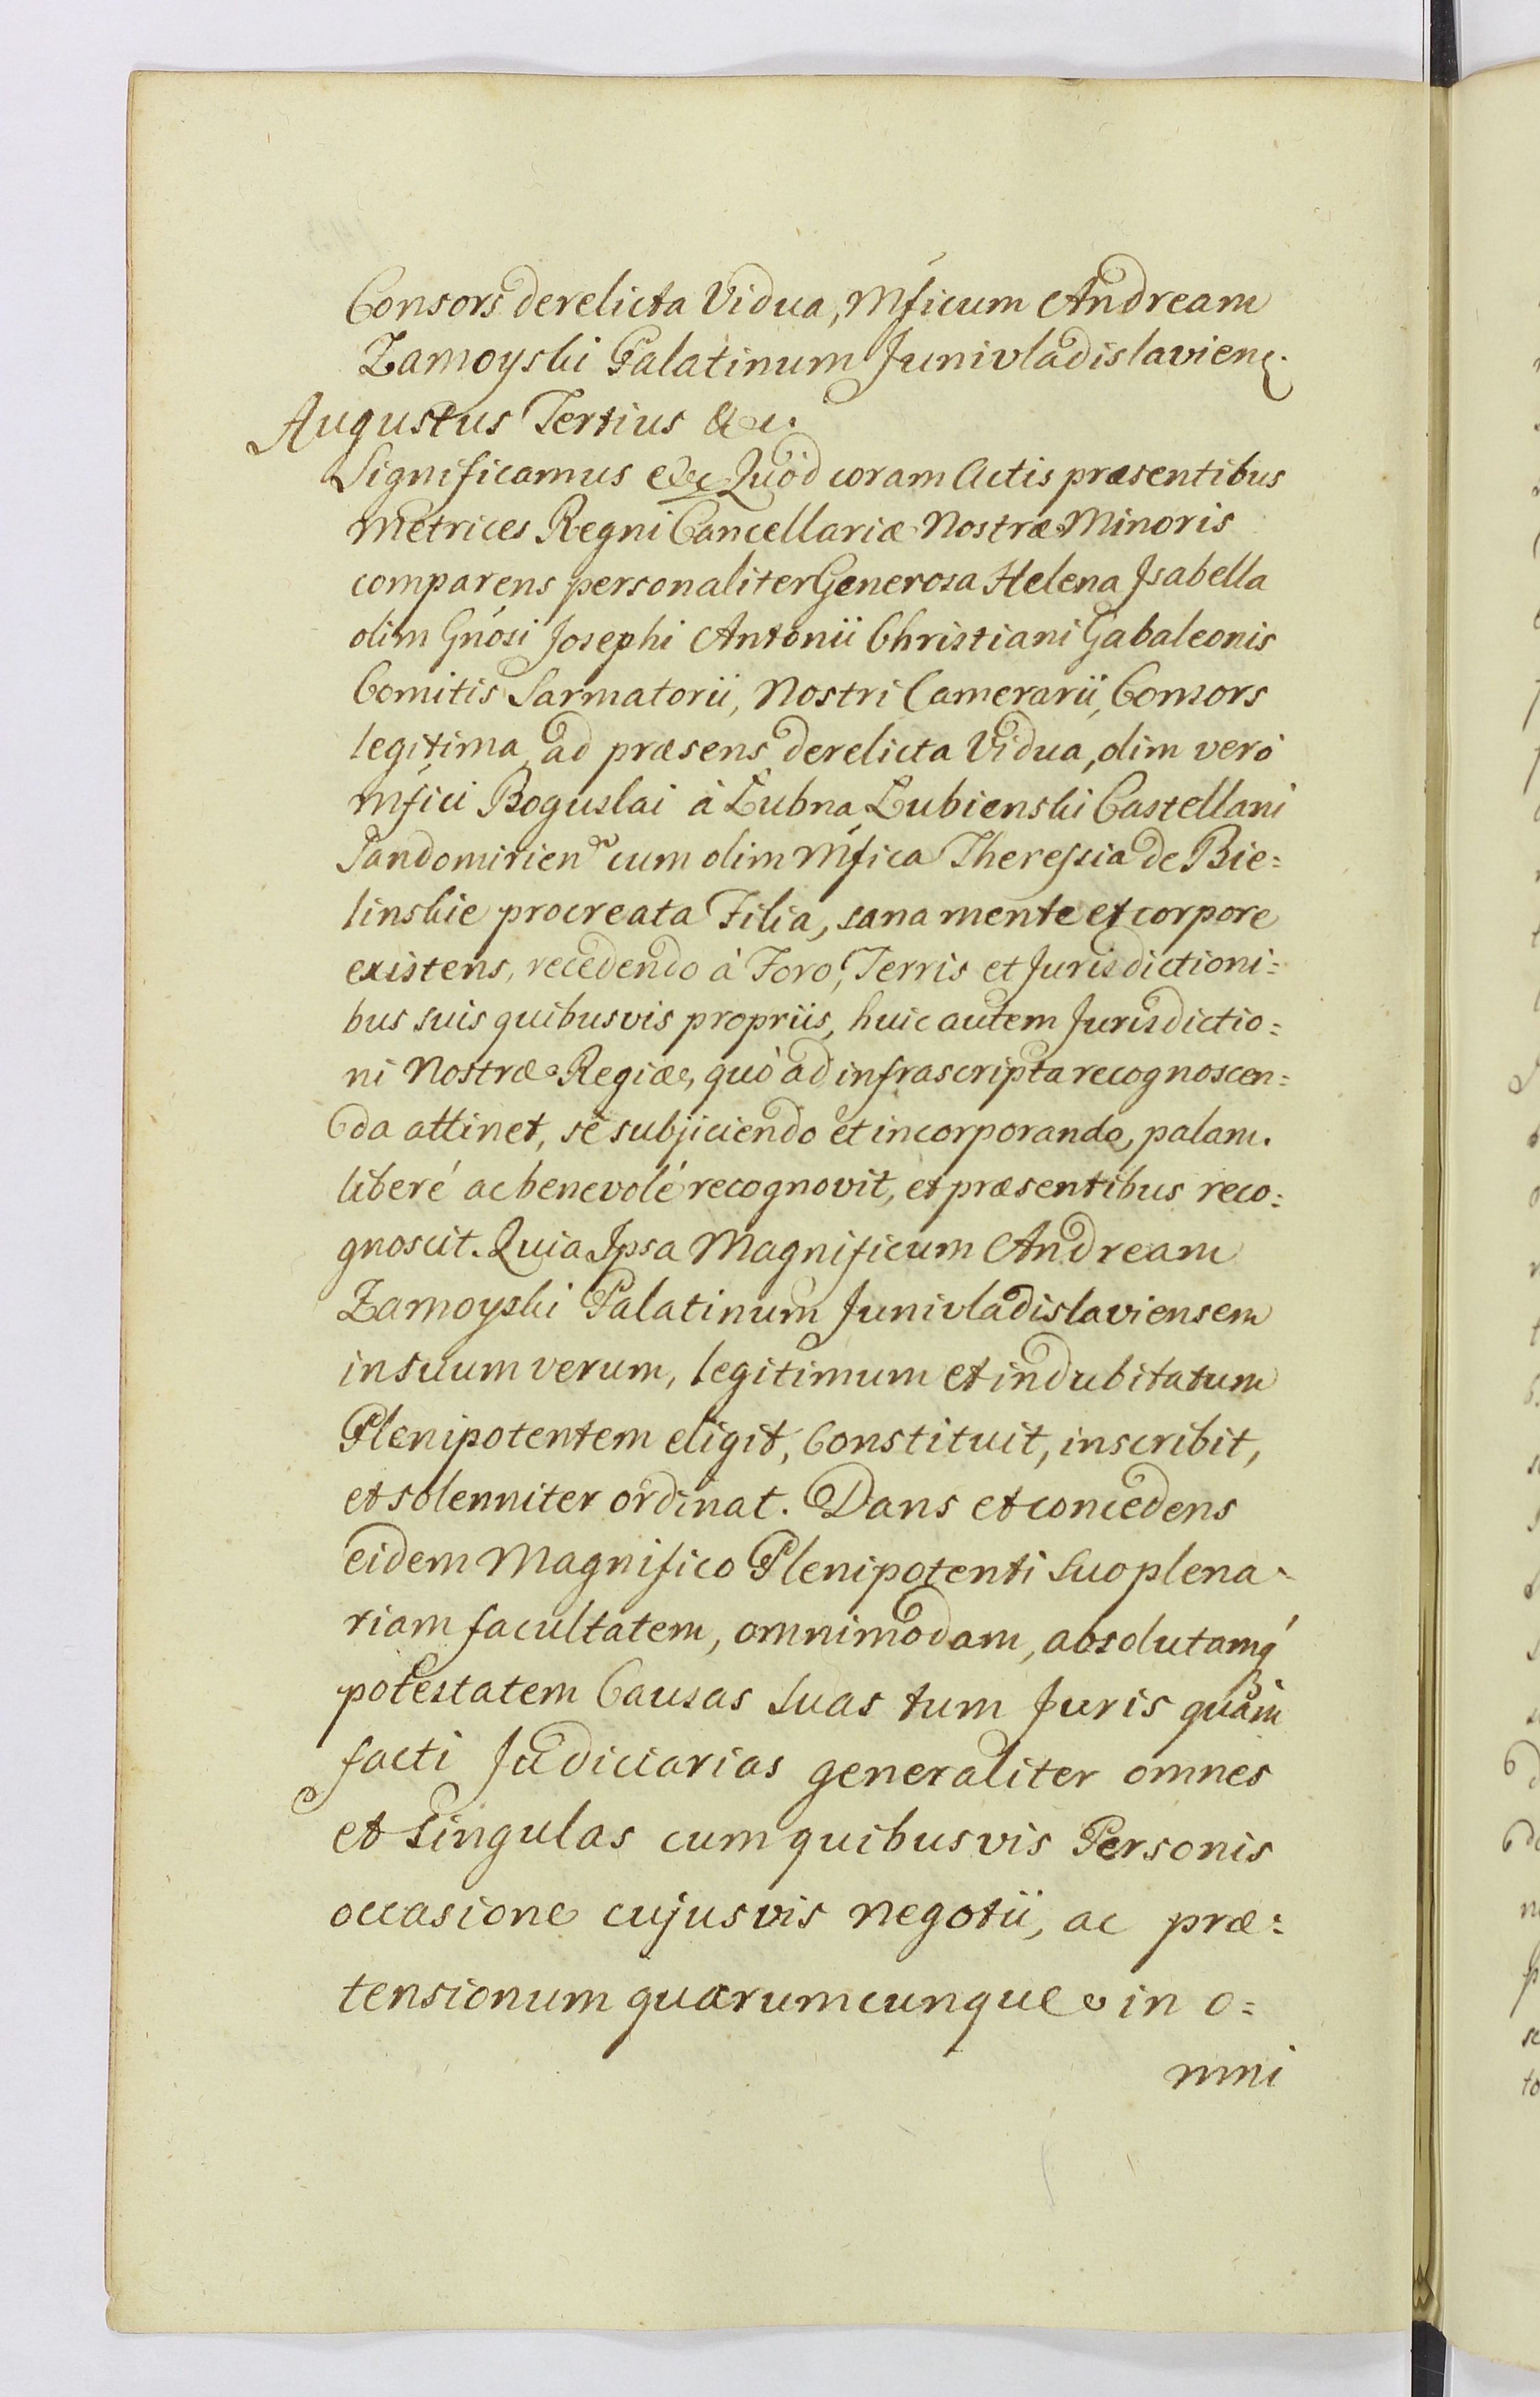 Consors derelicta Vidua, Mficum Andream
Zamoyski Palatinum Junivladislavien.
Augustus Tertius &c.
Significamus &c Quód coram Actis præsentibus
Metrices Regni Cancellariæ Nostræ Minoris
comparens personaliter Generosa Helena Jsabella
olim Gnósi Josephi Antonii Christiani Gabaleonis
Comitis Sarmatorii, Nostri Camerarii, Consors
legitima, ad præsens derelicta Vidua, olim veró
Mfici Boguslai à Łubna Łubienski Castellani
Sandomirien cum olim Mfica Theressia de Bie=
linskie procreata Filia, sana mente et corpore
existens, recedendo à Foro, Terris et Jurisdictioni=
bus suis quibusvis propriis, huic autem Jurisdictio=
ni Nostræ Regiæ, quò ad infrascripta recognoscen=
da attinet, se subjiciendo et incorporando, palam.
liberé ac benevolé recognovit, et præsentibus reco=
gnoscit. Quia Jpsa Magnificum Andream
Zamoyski Palatinum Junivladislaviensem
in suum verum, legitimum et indubitatum
Plenipotentem eligit, Constituit, inscribit,
et solenniter ordinat. Dans et concedens
eidem Magnifico Plenipotenti Suo plena-
riam facultatem, omnimodam, absolutamq́
potestatem Causas Suas tum Juris quàm
facti Judiciarias generaliter omnes
et Singulas cum quibusvis Personis
occasione cujusvis negotii, ac præ=
tensionum quarumcunque in o=
mni